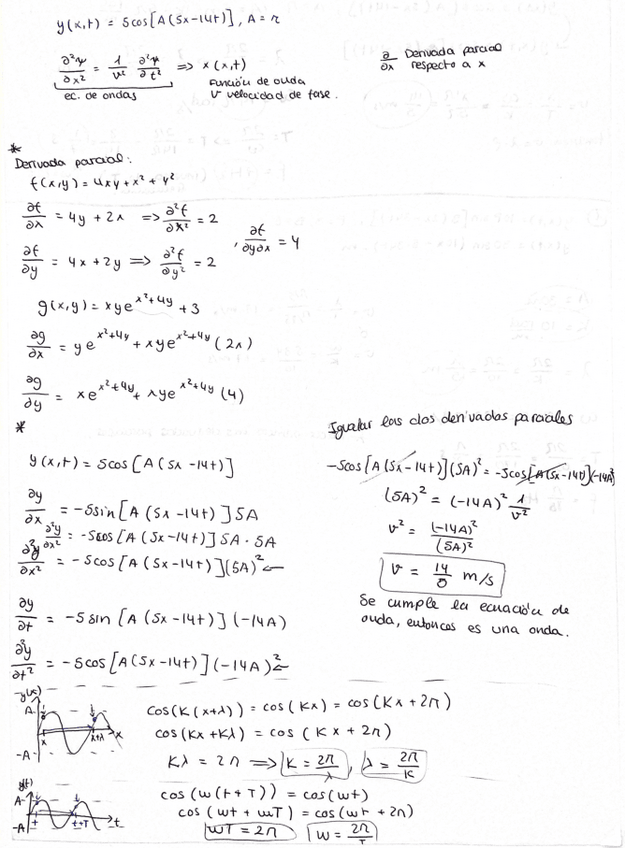 y(x,t) = 5cos[A(5x-14t)], A = π
∂²ψ/∂x² = 1/v² ∂²ψ/∂t² => x(x,t)
ec. de ondas
Función de onda
v velocidad de fase.
∂/∂x Derivada parcial
respecto a x
*
Derivada parcial:
f(x,y) = 4xy + x² + y²
∂f/∂x = 4y + 2x => ∂²f/∂x² = 2
, ∂f/∂y∂x = 4
∂f/∂y = 4x + 2y => ∂²f/∂y² = 2
g(x,y) = xye^(x²+4y) + 3
∂g/∂x = ye^(x²+4y) + xye^(x²+4y) (2x)
∂g/∂y = xe^(x²+4y) + xye^(x²+4y) (4)
*
y(x,t) = 5cos[A(5x-14t)]
∂y/∂x = -5sin[A(5x-14t)]5A
∂²y/∂x² = -5cos[A(5x-14t)]5A·5A
∂²y/∂x² = -5cos[A(5x-14t)](5A)²
∂y/∂t = -5sin[A(5x-14t)](-14A)
∂²y/∂t² = -5cos[A(5x-14t)](-14A)²
Igualar las dos derivadas parciales
-5cos[A(5x-14t)](5A)² = -5cos[A(5x-14t)](-14A)²
(5A)² = (-14A)² 1/v²
v² = (-14A)²/(5A)²
v = 14/5 m/s
Se cumple la ecuación de
onda, entonces es una onda.
y(x)
A
-A
x x+λ x
cos(K(x+λ)) = cos(Kx) = cos(Kx+2π)
cos(Kx+Kλ) = cos(Kx+2π)
Kλ = 2π => K = 2π/λ, λ = 2π/K
y(t)
A
-A
t t+T t
cos(w(t+T)) = cos(wt)
cos(wt+wT) = cos(wt+2π)
wT = 2π w = 2π/T